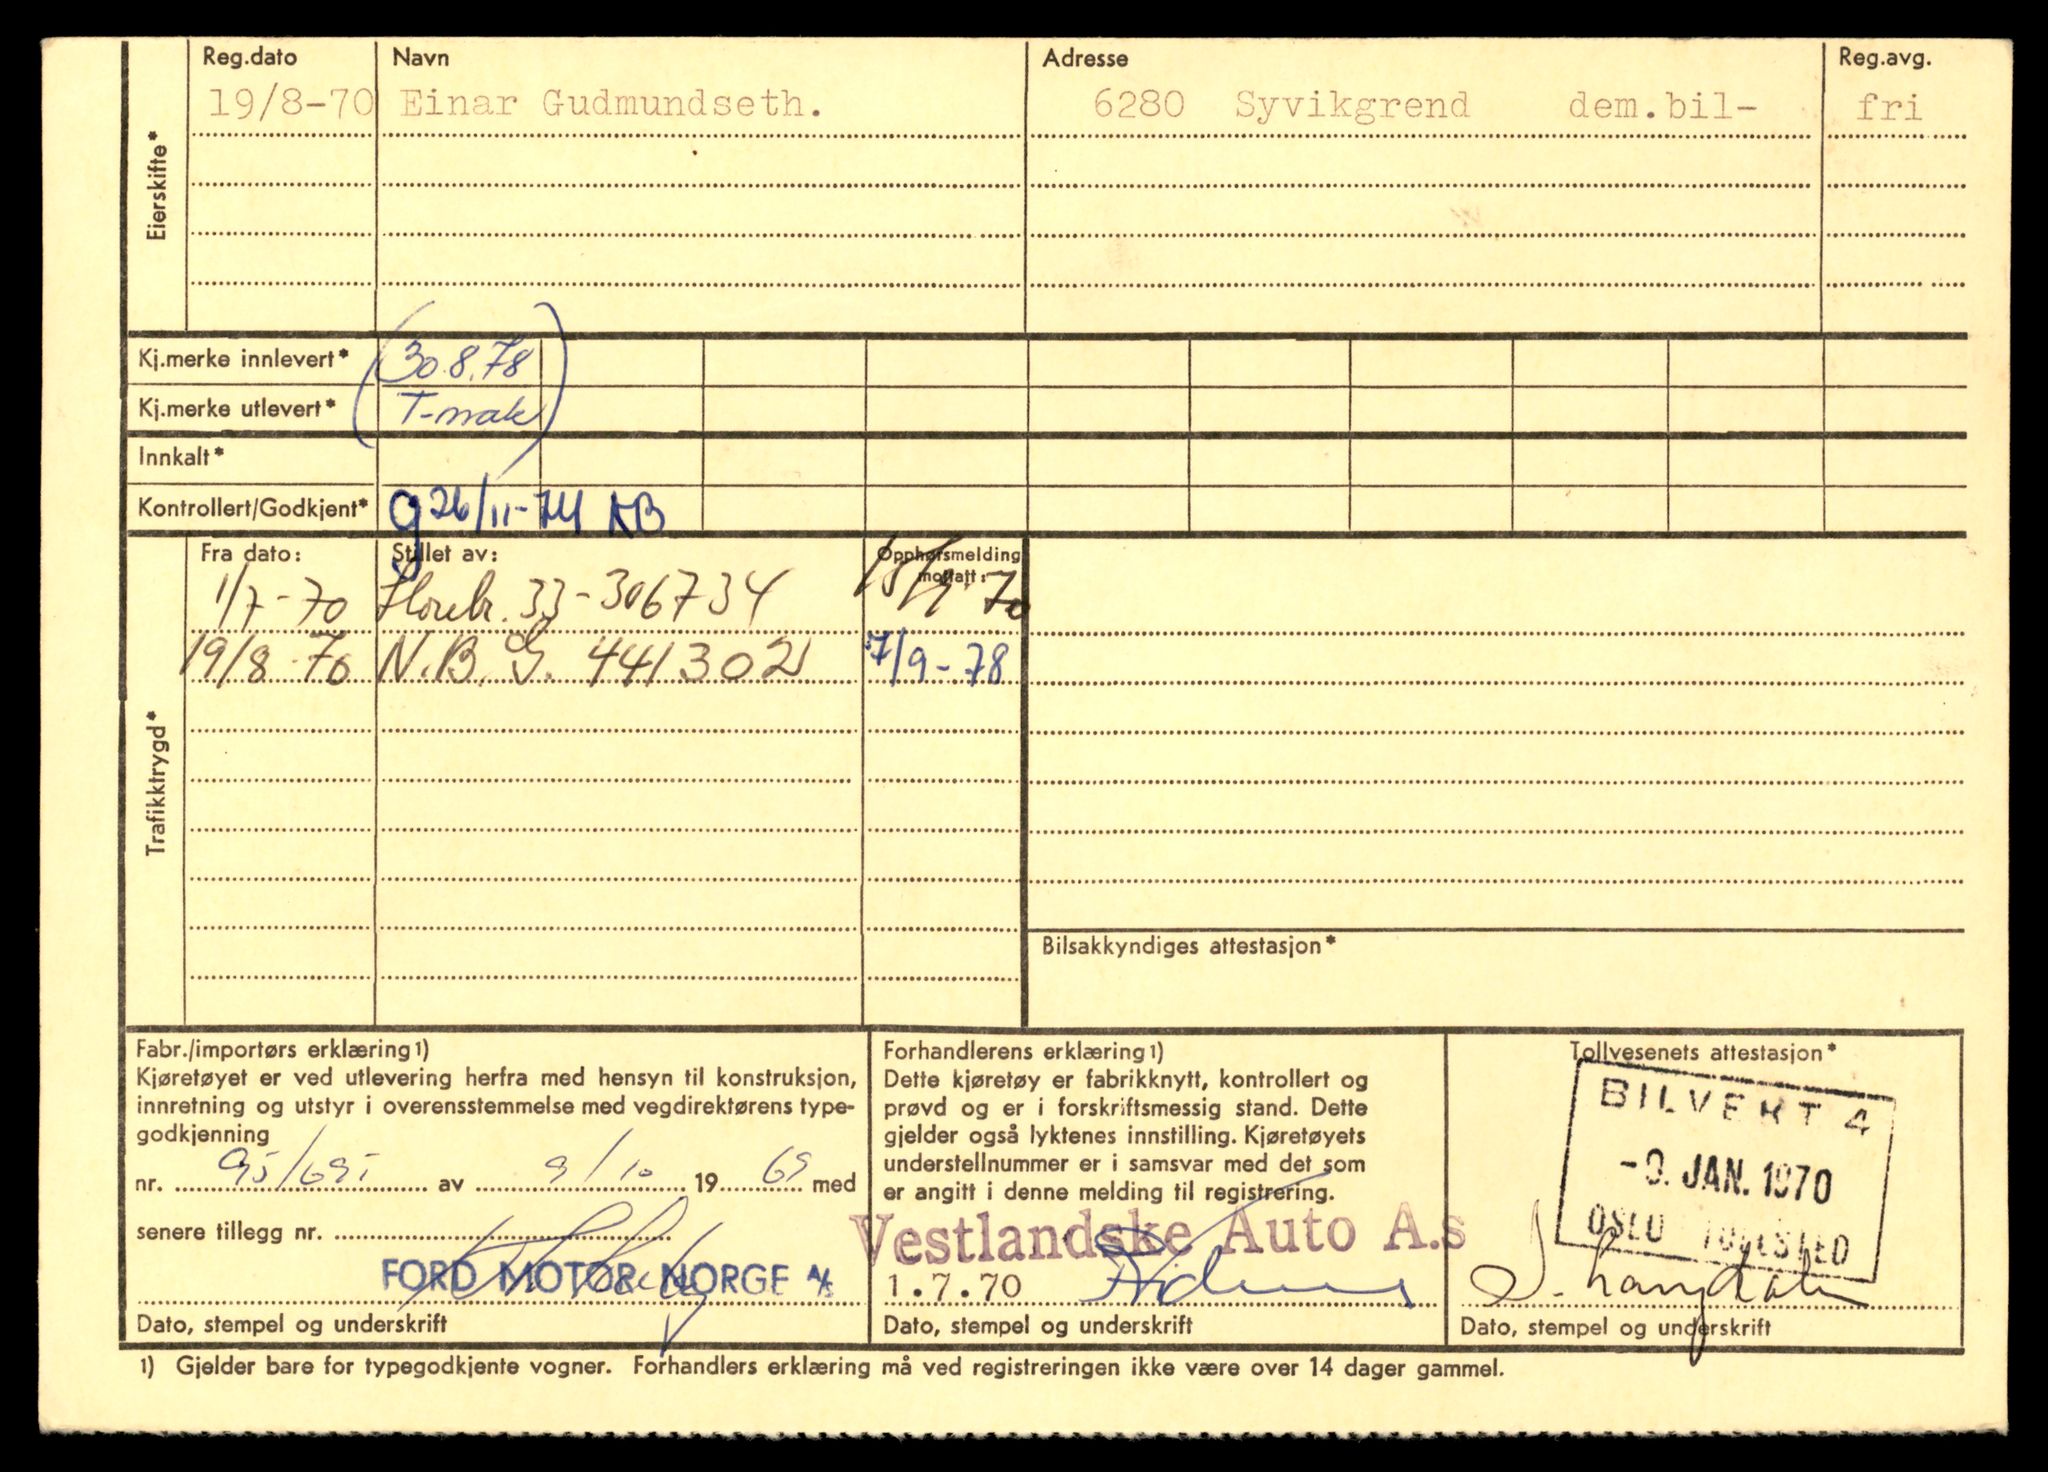 Reg.dato Navn Adresse Reg.avg.
19/8-70 Einar Gudmundseth. 6280 Syvikgrend dem.bil- fri
Eierskifte*
Kj.merke innlevert* (30.8.78
Kj.merke utlevert* T-mak)
Innkalt*
Kontrollert/Godkjent* g 26/11-74 AB
Trafikktrygd*
Fra dato: Stillet av: Opphørsmelding mottatt:
1/7-70 33-306734 15/9-70
19/8-70 N.B.G. 441302 7/9-78
Bilsakkyndiges attestasjon*
Fabr./importørs erklæring 1)
Kjøretøyet er ved utlevering herfra med hensyn til konstruksjon,
innretning og utstyr i overensstemmelse med vegdirektørens type-
godkjenning
nr. 95/69 av 9/10 19 69 med
senere tillegg nr.
FORD MOTOR NORGE A/S
Dato, stempel og underskrift
Forhandlerens erklæring 1)
Dette kjøretøy er fabrikknytt, kontrollert og
prøvd og er i forskriftsmessig stand. Dette
gjelder også lyktenes innstilling. Kjøretøyets
understellnummer er i samsvar med det som
er angitt i denne melding til registrering.
Vestlandske Auto A.s
1.7.70
Dato, stempel og underskrift
Tollvesenets attestasjon*
BILVEKT 4
-9. JAN. 1970
OSLO TOLLSTED
Dato, stempel og underskrift
1) Gjelder bare for typegodkjente vogner. Forhandlers erklæring må ved registreringen ikke være over 14 dager gammel.